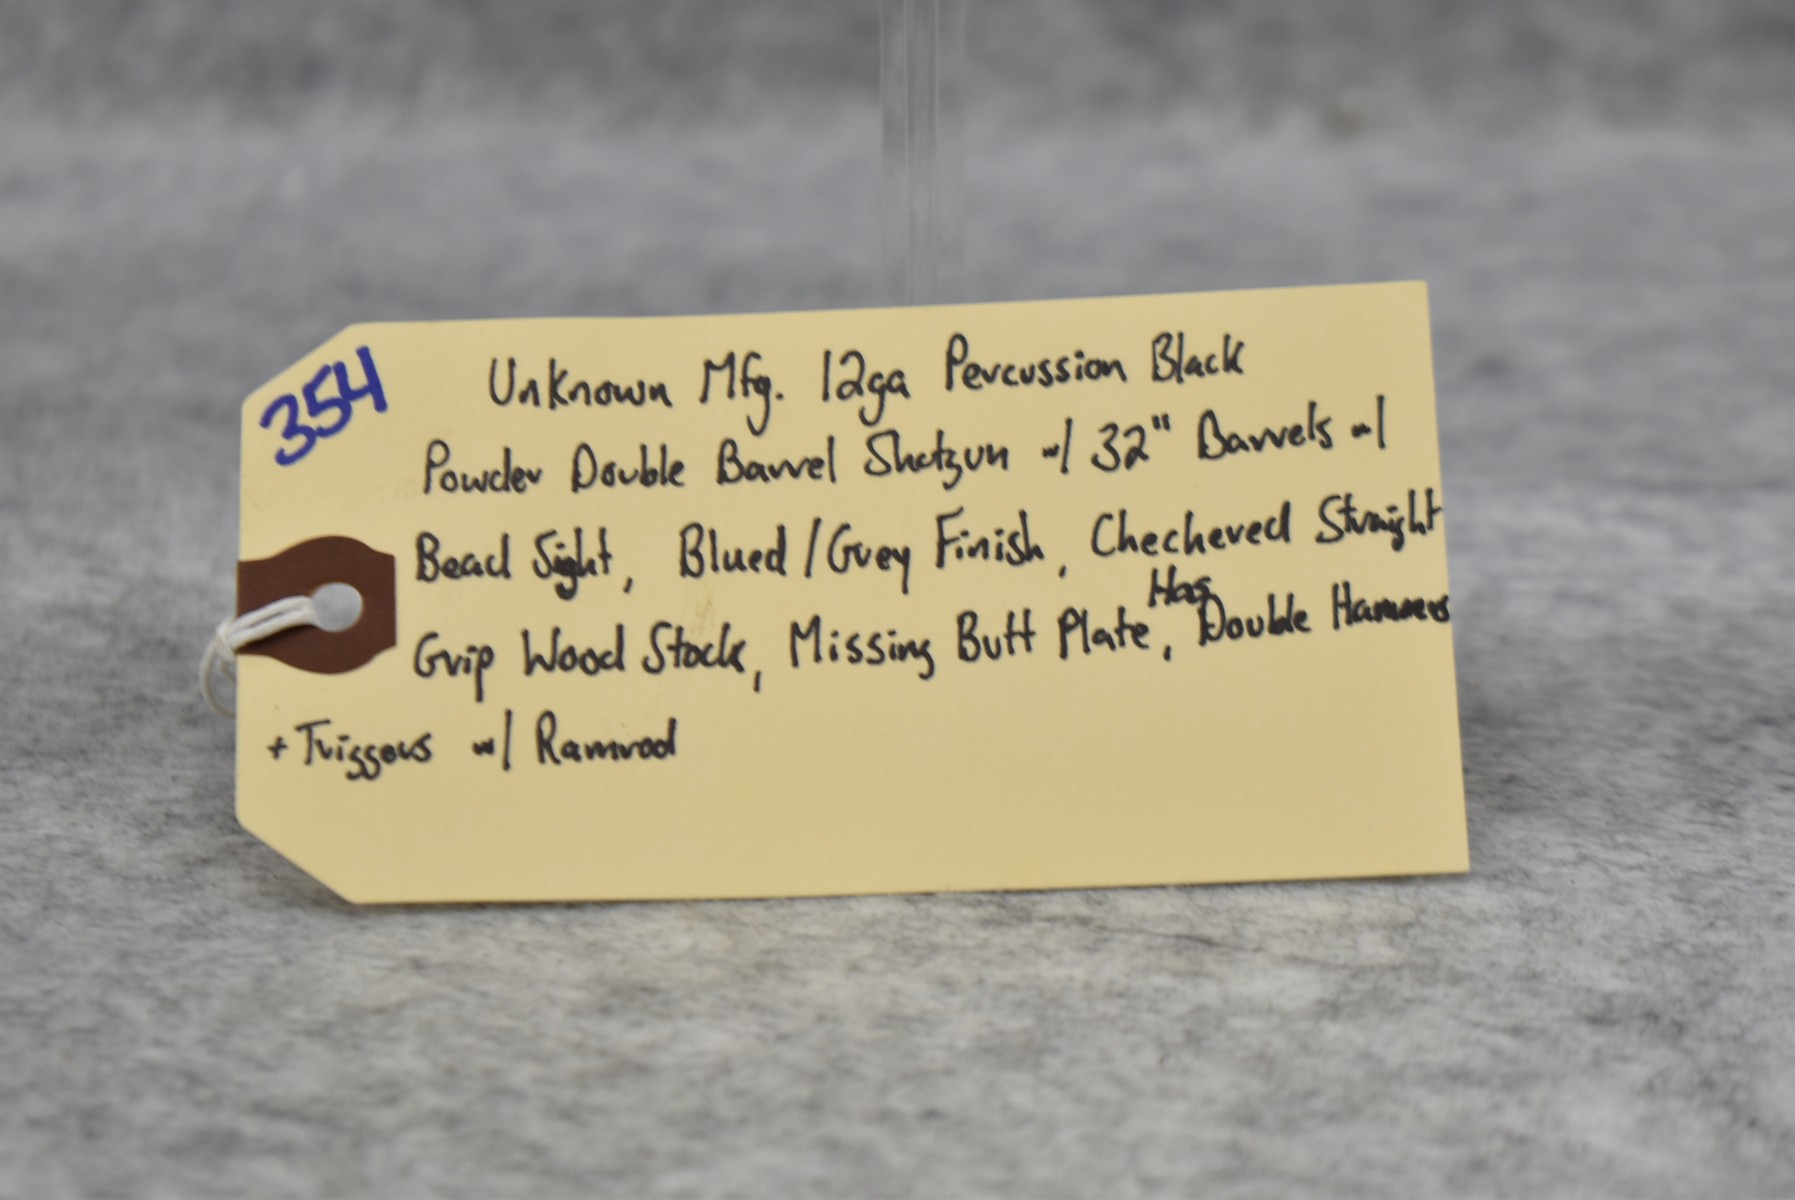 354
Unknown Mfg. 12ga Percussion Black
Powder Double Barrel Shotgun w/ 32" Barrels w/
Bead Sight, Blued/Grey Finish, Checkered Straight
Grip Wood Stock, Missing Butt Plate, Has Double Hammers
+ Triggers w/ Ramrod